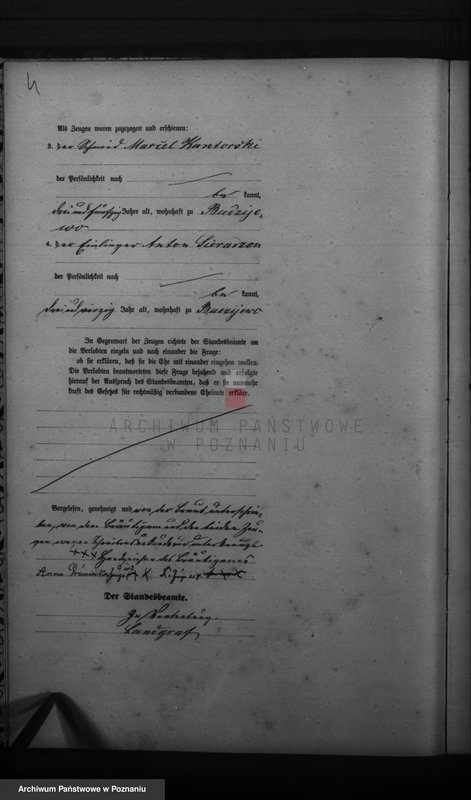 Als Zeugen waren zugezogen und erschienen:
3. der Schmied Marcel Kantorski
der Persönlichkeit nach
be kannt,
dreiundfünfzig Jahre alt, wohnhaft zu Budzije-
wo
4. der Einlieger Anton
der Persönlichkeit nach
be kannt,
dreiundvierzig Jahr alt, wohnhaft zu
In Gegenwart der Zeugen richtete der Standesbeamte an
die Verlobten einzeln und nach einander die Frage:
ob sie erklären, daß sie die Ehe mit einander eingehen wollen.
Die Verlobten beantworteten diese Frage bejahend und erfolgte
hierauf der Ausspruch des Standesbeamten, daß er sie nunmehr
kraft des Gesetzes für rechtmäßig verbundene Eheleute erkläre.
ARCHIWUM PAŃSTWOWE
W POZNANIU
Vorgelesen, genehmigt und von der Braut unterschrie-
ben, von dem Bräutigam und den beiden Zeu-
gen wegen
+++ Handzeichen des Bräutigams
Anna
Der Standesbeamte.
In Vertretung.
Landgraf
Archiwum Państwowe w Poznaniu